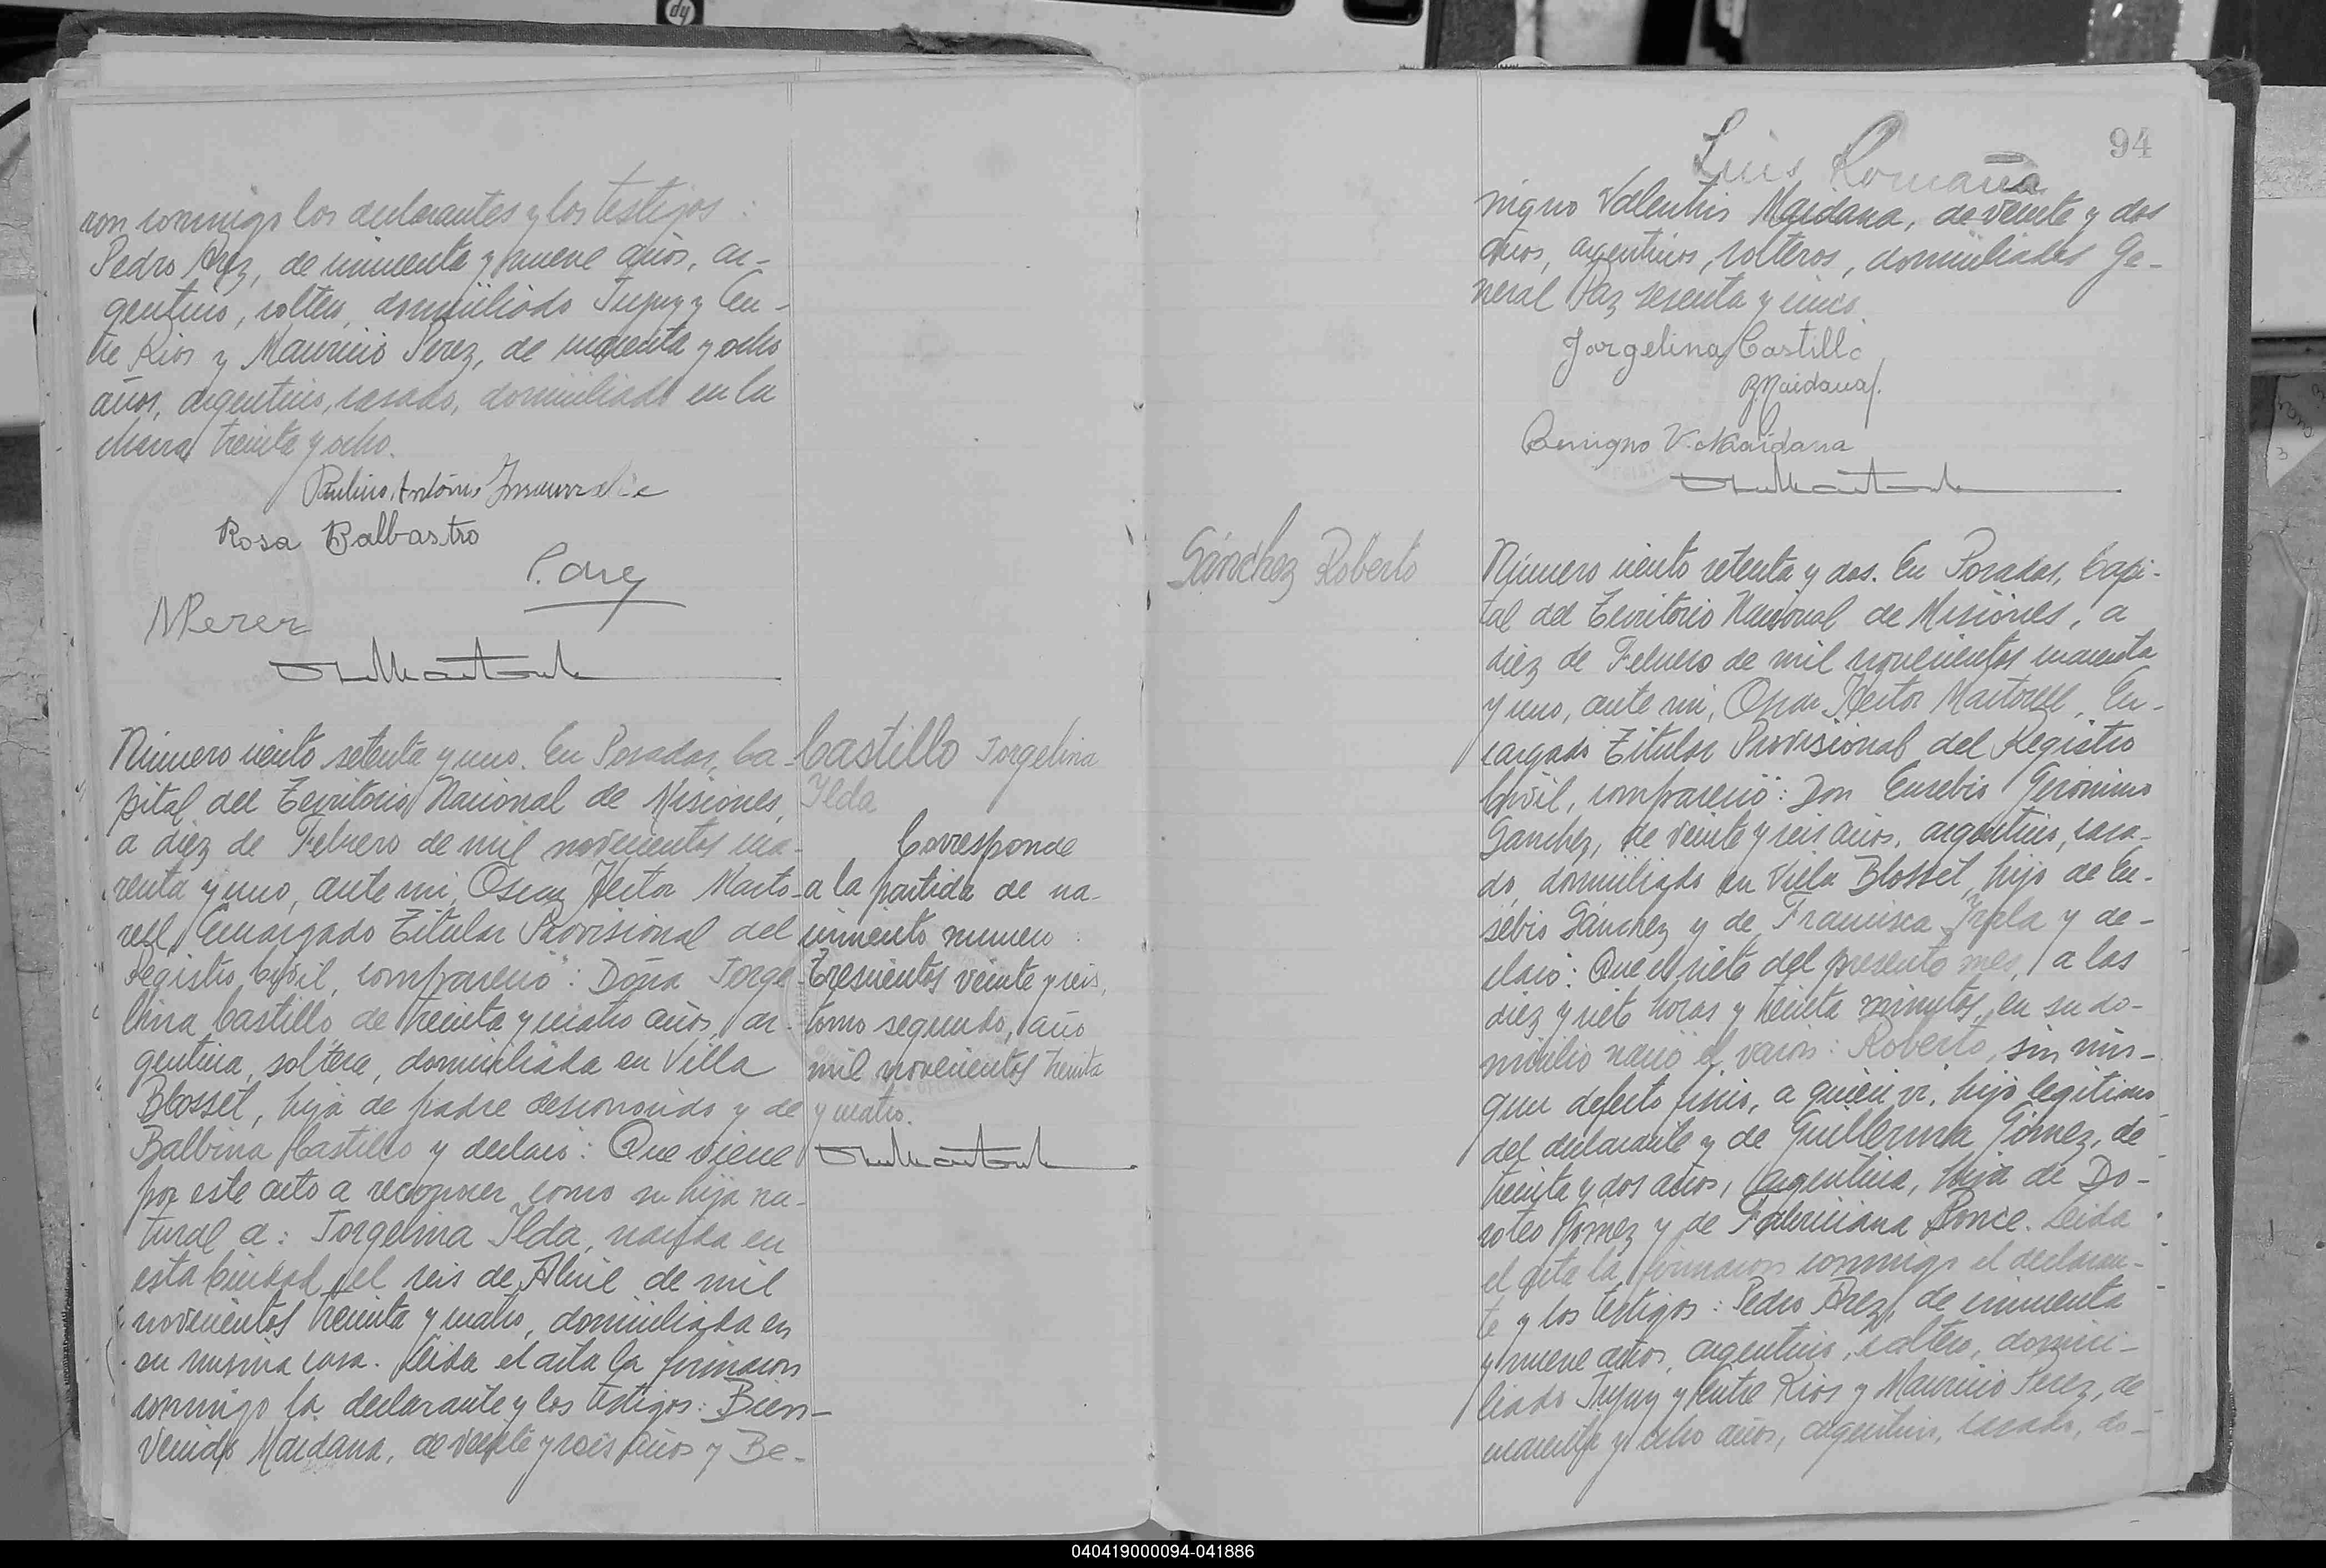 ron conmigo los declarantes y los testigos:
Pedro Arez, de cincuenta y nueve años, ar-
gentino, soltero, domiciliado Jujuy y En-
tre Rios y Mauricio Perez, de cuarenta y ocho
años, argentino, casado, domiciliado en la
chacra treinta y ocho.
Paulino Antonio Insaurralde
Rosa Balbastro
P. Arez
MPerez
Número ciento setenta y uno. En Posadas, Ca-
pital del Territorio Nacional de Misiones,
a diez de Febrero de mil novecientos cua-
renta y uno, ante mi, Oscar Hector Marto-
rell, Encargado Titular Provisional del
Registro Civil, compareció: Doña Jorge-
lina Castillo, de treinta y cuatro años, ar-
gentina, soltera, domiciliada en Villa
Blosset, hija de padre desconocido y de
Balbina Castillo y declaró: Que viene
por este acto a reconocer como su hija na-
tural a: Jorgelina Ilda, nacida en
esta Ciudad, el seis de Abril de mil
novecientos treinta y cuatro, domiciliada en
su misma casa. Leida el acta la firmaron
conmigo la declarante y los testigos: Bien-
venido Maidana, de veinte y seis años y Be-
Castillo Jorgelina
Ilda
Corresponde
a la partida de na-
cimiento numero
Trescientos veinte y seis,
tomo segundo, año
mil novecientos treinta
y cuatro.
94
Luis Romaña
nigno Valentin Maidana, de veinte y dos
años, argentinos, solteros, domiciliados Ge-
neral Paz sesenta y cinco.
Jorgelina Castillo
B. Maidana
Benigno V. Maidana
Sánchez Roberto
Número ciento setenta y dos. En Posadas, Capi-
tal del Territorio Nacional de Misiones, a
diez de Febrero de mil novecientos cuarenta
y uno, ante mi, Oscar Hector Martorell, En-
cargado Titular Provisional del Registro
Civil, compareció: Don Eusebio Gerónimo
Sanchez, de veinte y seis años, argentino, casa-
do, domiciliado en Villa Blosset, hijo de Eu-
sebio Sánchez y de Francisca Irala y de-
claró: Que el siete del presente mes, a las
diez y siete horas y treinta minutos, en su do-
micilio nació el varón: Roberto, sin nin-
gun defecto fisico, a quién vi, hijo legitimo
del declarante y de Guillerma Gómez, de
treinta y dos años, argentina, hija de Do-
roteo Gómez y de Feliciana Ponce. Leida
el acta la firmaron conmigo el declaran-
te y los testigos: Pedro Arez, de cincuenta
y nueve años, argentino, soltero, domici-
liado Jujuy y Entre Rios y Mauricio Perez, de
cuarenta y ocho años, argentino, casado, do-
040419000094-041886